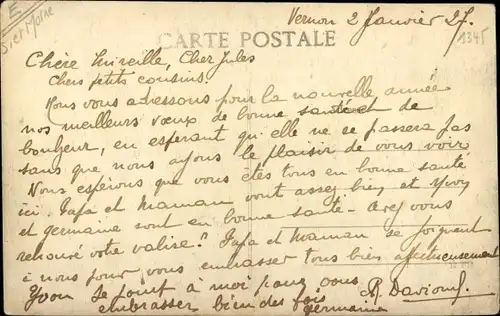 E
S et Marne
1345
Vernon 2 Janvier 27.
CARTE POSTALE
Chère Mireille, Cher Jules
Chers petits cousins!
Nous vous adressons pour la nouvelle année
nos meilleurs vœux de bonne santé et de
bonheur, en esperant qu'elle ne se passera pas
sans que nous ayons le plaisir de vous voir
Nous espérons que vous êtes tous en bonne santé
ici. Papa et Maman vont assez bien et Yvon
et germaine sont en bonne santé - Avez vous
retrouvé votre valise? Papa et Maman se joignent
à nous pour vous embrasser tous bien affectueusement
Yvon se joint à moi pour vous
embrasser bien des fois
germaine
R. Davion